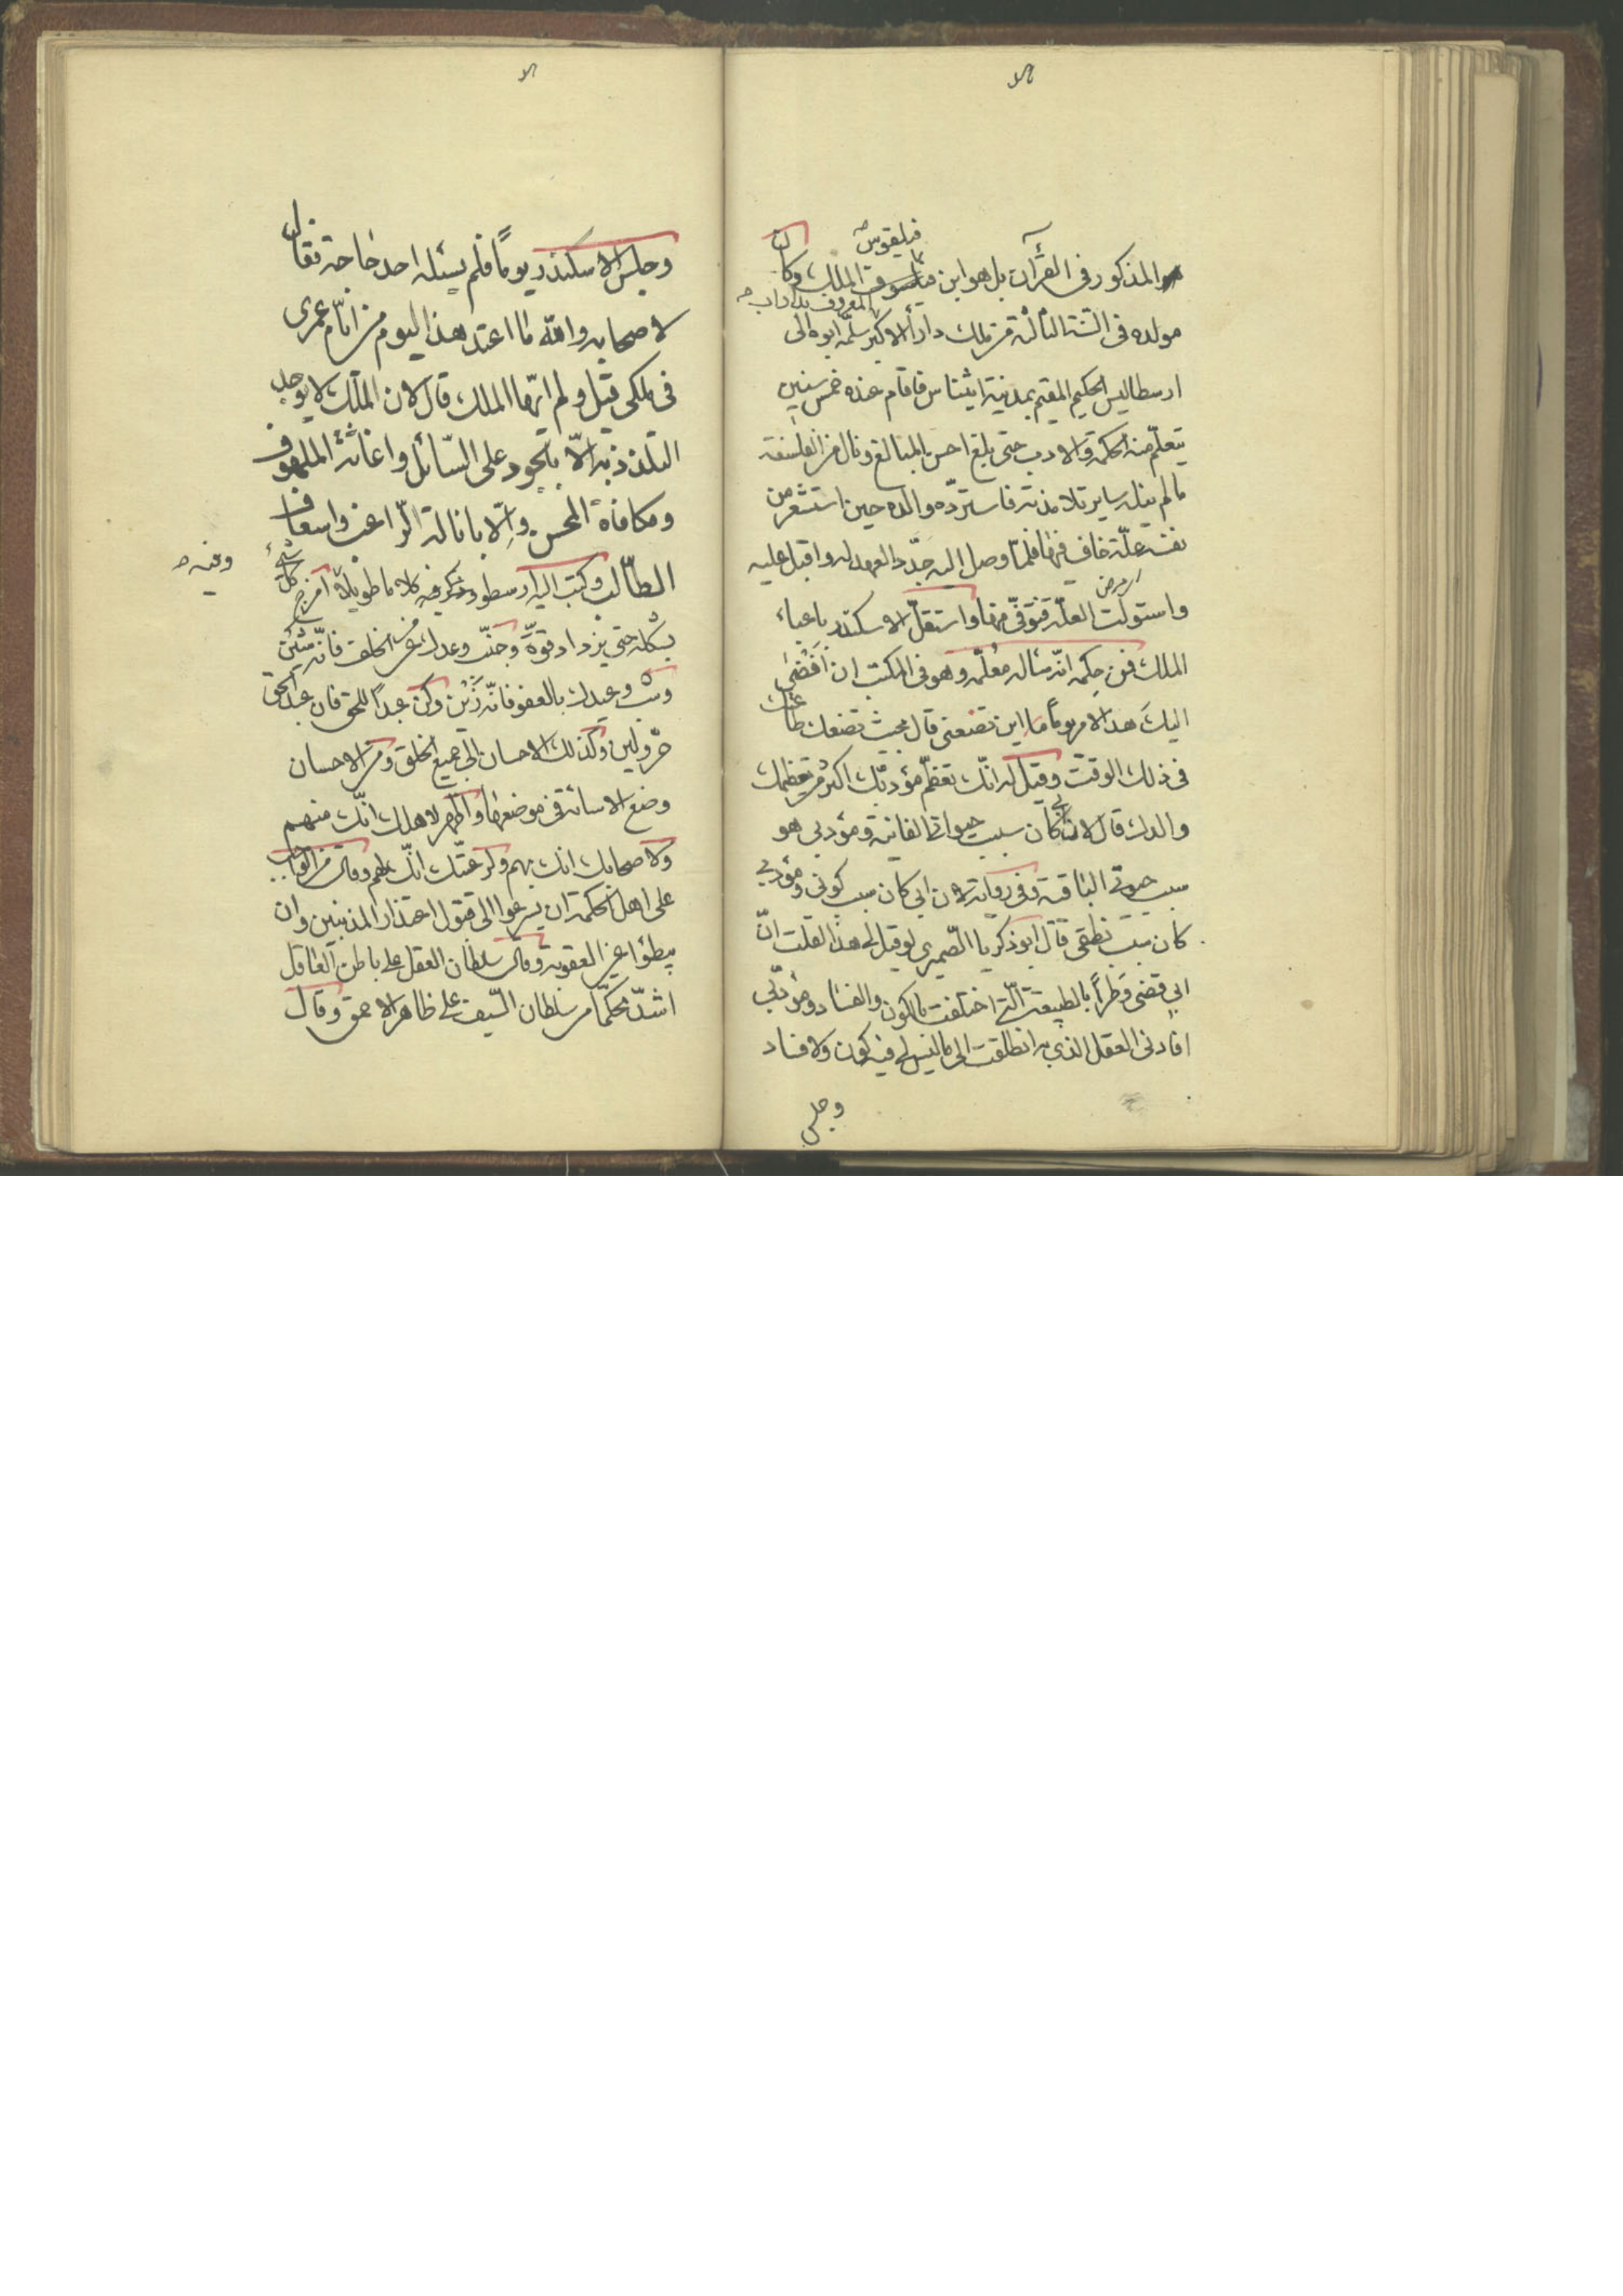 المذكور فى القرآن بل هو ابن فيلقوس الملك وكان
مولده فى السّنة الثالثة من ملك دارا الاكبر المعروف بداراب سلّمه ابوه الى
ارسطاليس الحكيم المقيم بمدينة ايثناس فاقام عنده خمس سنين
يتعلّم منه الحكمة والادب حتى بلغ احسن المبالغ ونال من الفلسفة
ما لم ينل ساير تلامذته فاستردّه والده حين استشعر من
نفسه علّة خاف منها فلمّا وصل اليه جدّد العهد له واقبل عليه
واستولت العلّة فتوفّى منها واستقلّ الاسكندر باعباء
الملك فمن حِكمه انّه سأله معلّمه وهو فى المكتب ان اَفْضٰى
اليك هذا الامر يوماً ما اين تضعنى قال بحيث تضعك طاعتك
فى ذلك الوقت وقيل له انّك تعظّم مؤدبّك اكثر من تعظيمك
والدك قال لان ابى كان سبب حيوتى الفانية ومؤدبى هو
سبب حيوتى الباقية وفى رواية لان ابى كان سبب كونى ومؤدبى
كان سبب نطقى قال ابوذكريا الصّيمرى لو قيل لى هذا لقلت انّ
ابى قضى وَطَراً بالطبيعة الّتى اختلفت بالكون والفساد ومؤدّبى
افادنى العقل الذى به انطلقت الى ما ليس فيه كون ولا فساد
وجلس
وجلس الاسكندر يوماً فلم يسئله احد حاجة فقال
لاصحابه والله ما اعتد هذا اليوم من ايّام عمرى
فى ملكى قيل ولم ايّها الملك قال لان الملك لا يوجد
التلذذ به الّا بالجود على السّائل واغاثة الملهوف
ومكافاة المحسن والّا بانالة الرّاغب واسعاف
الطّالب وكتب اليه ارسطو وذكر فيه كلاما طويلاً امزج كلّ شئ
بشكله حتى يزداد قوّة وجنّب وعدك من الخلف فانّه شَين
وشب وعيدك بالعفو فانّه زَيْن وكن عبداً للحق فان عبد الحق
حرّ وليكن وكدك الاحسان الى جميع الخلق ومن الاحسان
وضع الاسائة فى موضعها واظهر لاهلك انّك منهم
ولاصحابك انك بهم ولرعيّتك انّك لهم وقال من الواجب
على اهل الحكمة ان يسرعوا الى قبول اعتذار المذنبين وان
يبطؤا عن العقوبة وقال سلطان العقل على باطن العاقل
اشدّ تحكّماً من سلطان السّيف على ظاهر الاحمق وقال